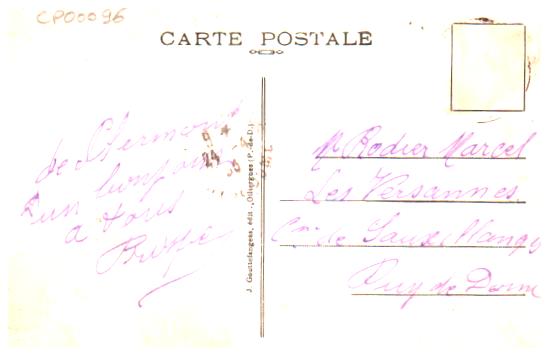 CP00096
CARTE POSTALE
de Clermont
un bonjour
a tous
J. Gouttefangeas, édit., Olliergues (P.-de-D.)
Mr Rodier Marcel
Les Versannes
Cne de Sauxillanges
Puy de Dome